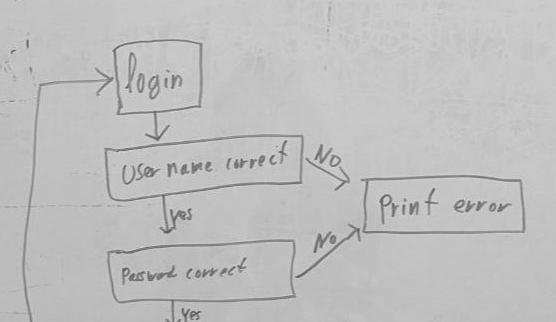 login
User name correct
No
Print error
yes
No
Password correct
Yes